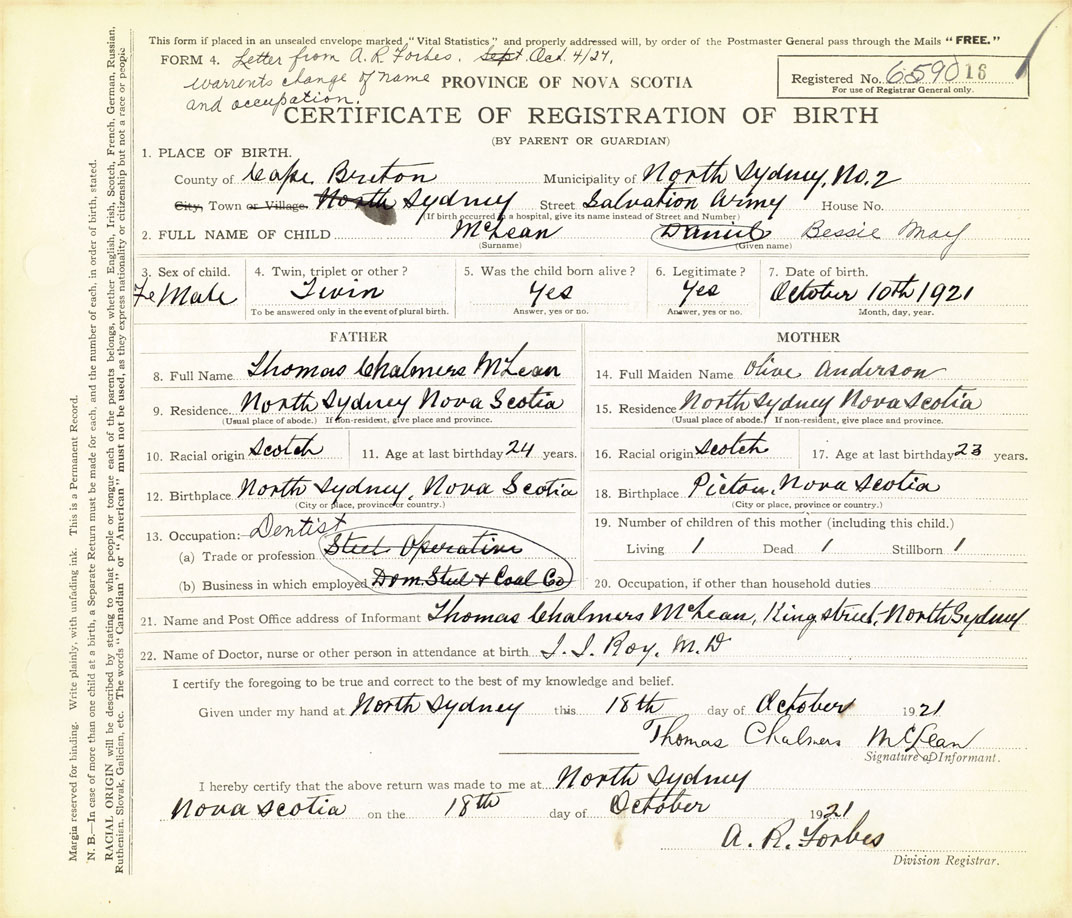 This form if placed in an unsealed envelope marked "Vital Statistics" and properly addressed will, by order of the Postmaster General pass through the Mails "FREE."
FORM 4. Letter from A. R. Forbes. Sept. Oct. 4/27,
warrents change of name
and occupation.
PROVINCE OF NOVA SCOTIA
Registered No. 6590 16
For use of Registrar General only.
CERTIFICATE OF REGISTRATION OF BIRTH
(BY PARENT OR GUARDIAN)
1. PLACE OF BIRTH.
County of Cape Breton Municipality of North Sydney, No. 2
City, Town or Village. North Sydney Street Salvation Army House No.
(If birth occurred in a hospital, give its name instead of Street and Number)
2. FULL NAME OF CHILD McLean Daniel Bessie May
(Surname) (Given name)
3. Sex of child. 4. Twin, triplet or other? 5. Was the child born alive? 6. Legitimate? 7. Date of birth.
FeMale Twin Yes Yes October 10th 1921
To be answered only in the event of plural birth. Answer, yes or no. Answer, yes or no. Month, day, year.
FATHER MOTHER
8. Full Name Thomas Chalmers McLean 14. Full Maiden Name Olive Anderson
9. Residence North Sydney Nova Scotia 15. Residence North Sydney Nova Scotia
(Usual place of abode.) If non-resident, give place and province. (Usual place of abode.) If non-resident, give place and province.
10. Racial origin Scotch 11. Age at last birthday 24 years. 16. Racial origin Scotch 17. Age at last birthday 23 years.
12. Birthplace North Sydney, Nova Scotia 18. Birthplace Pictou, Nova Scotia
(City or place, province or country.) (City or place, province or country.)
13. Occupation: Dentist 19. Number of children of this mother (including this child.)
(a) Trade or profession Steel Operative Living 1 Dead 1 Stillborn 1
(b) Business in which employed Dom. Steel & Coal Co 20. Occupation, if other than household duties
21. Name and Post Office address of Informant Thomas Chalmers McLean, King street, North Sydney
22. Name of Doctor, nurse or other person in attendance at birth J. J. Roy. M.D
I certify the foregoing to be true and correct to the best of my knowledge and belief.
Given under my hand at North Sydney this 18th day of October 1921
Thomas Chalmers McLean
Signature of Informant.
I hereby certify that the above return was made to me at North Sydney
Nova Scotia on the 18th day of October 1921
A. R. Forbes
Division Registrar.
Margin reserved for binding. Write plainly, with unfading ink. This is a Permanent Record.
N. B.—In case of more than one child at a birth, a Separate Return must be made for each, and the number of each, in order of birth, stated.
RACIAL ORIGIN will be described by stating to what people or tongue each of the parents belongs, whether English, Irish, Scotch, French, German, Russian,
Ruthenian, Slovak, Galician, etc. The words "Canadian" or "American" must not be used, as they express nationality or citizenship but not a race or people